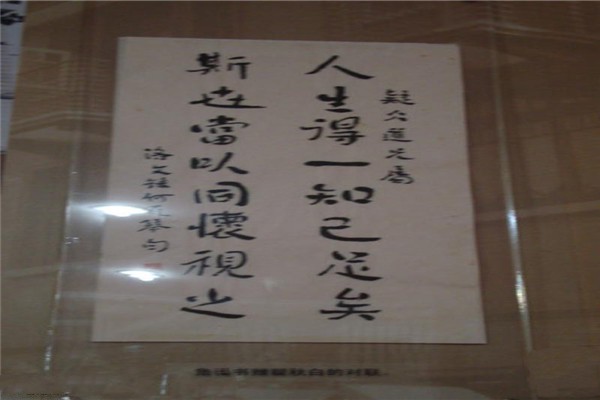 疑仌道兄属
人生得一知己足矣
斯世當以同懷視之
洛文錄何瓦琴句
鲁迅书赠瞿秋白的对联